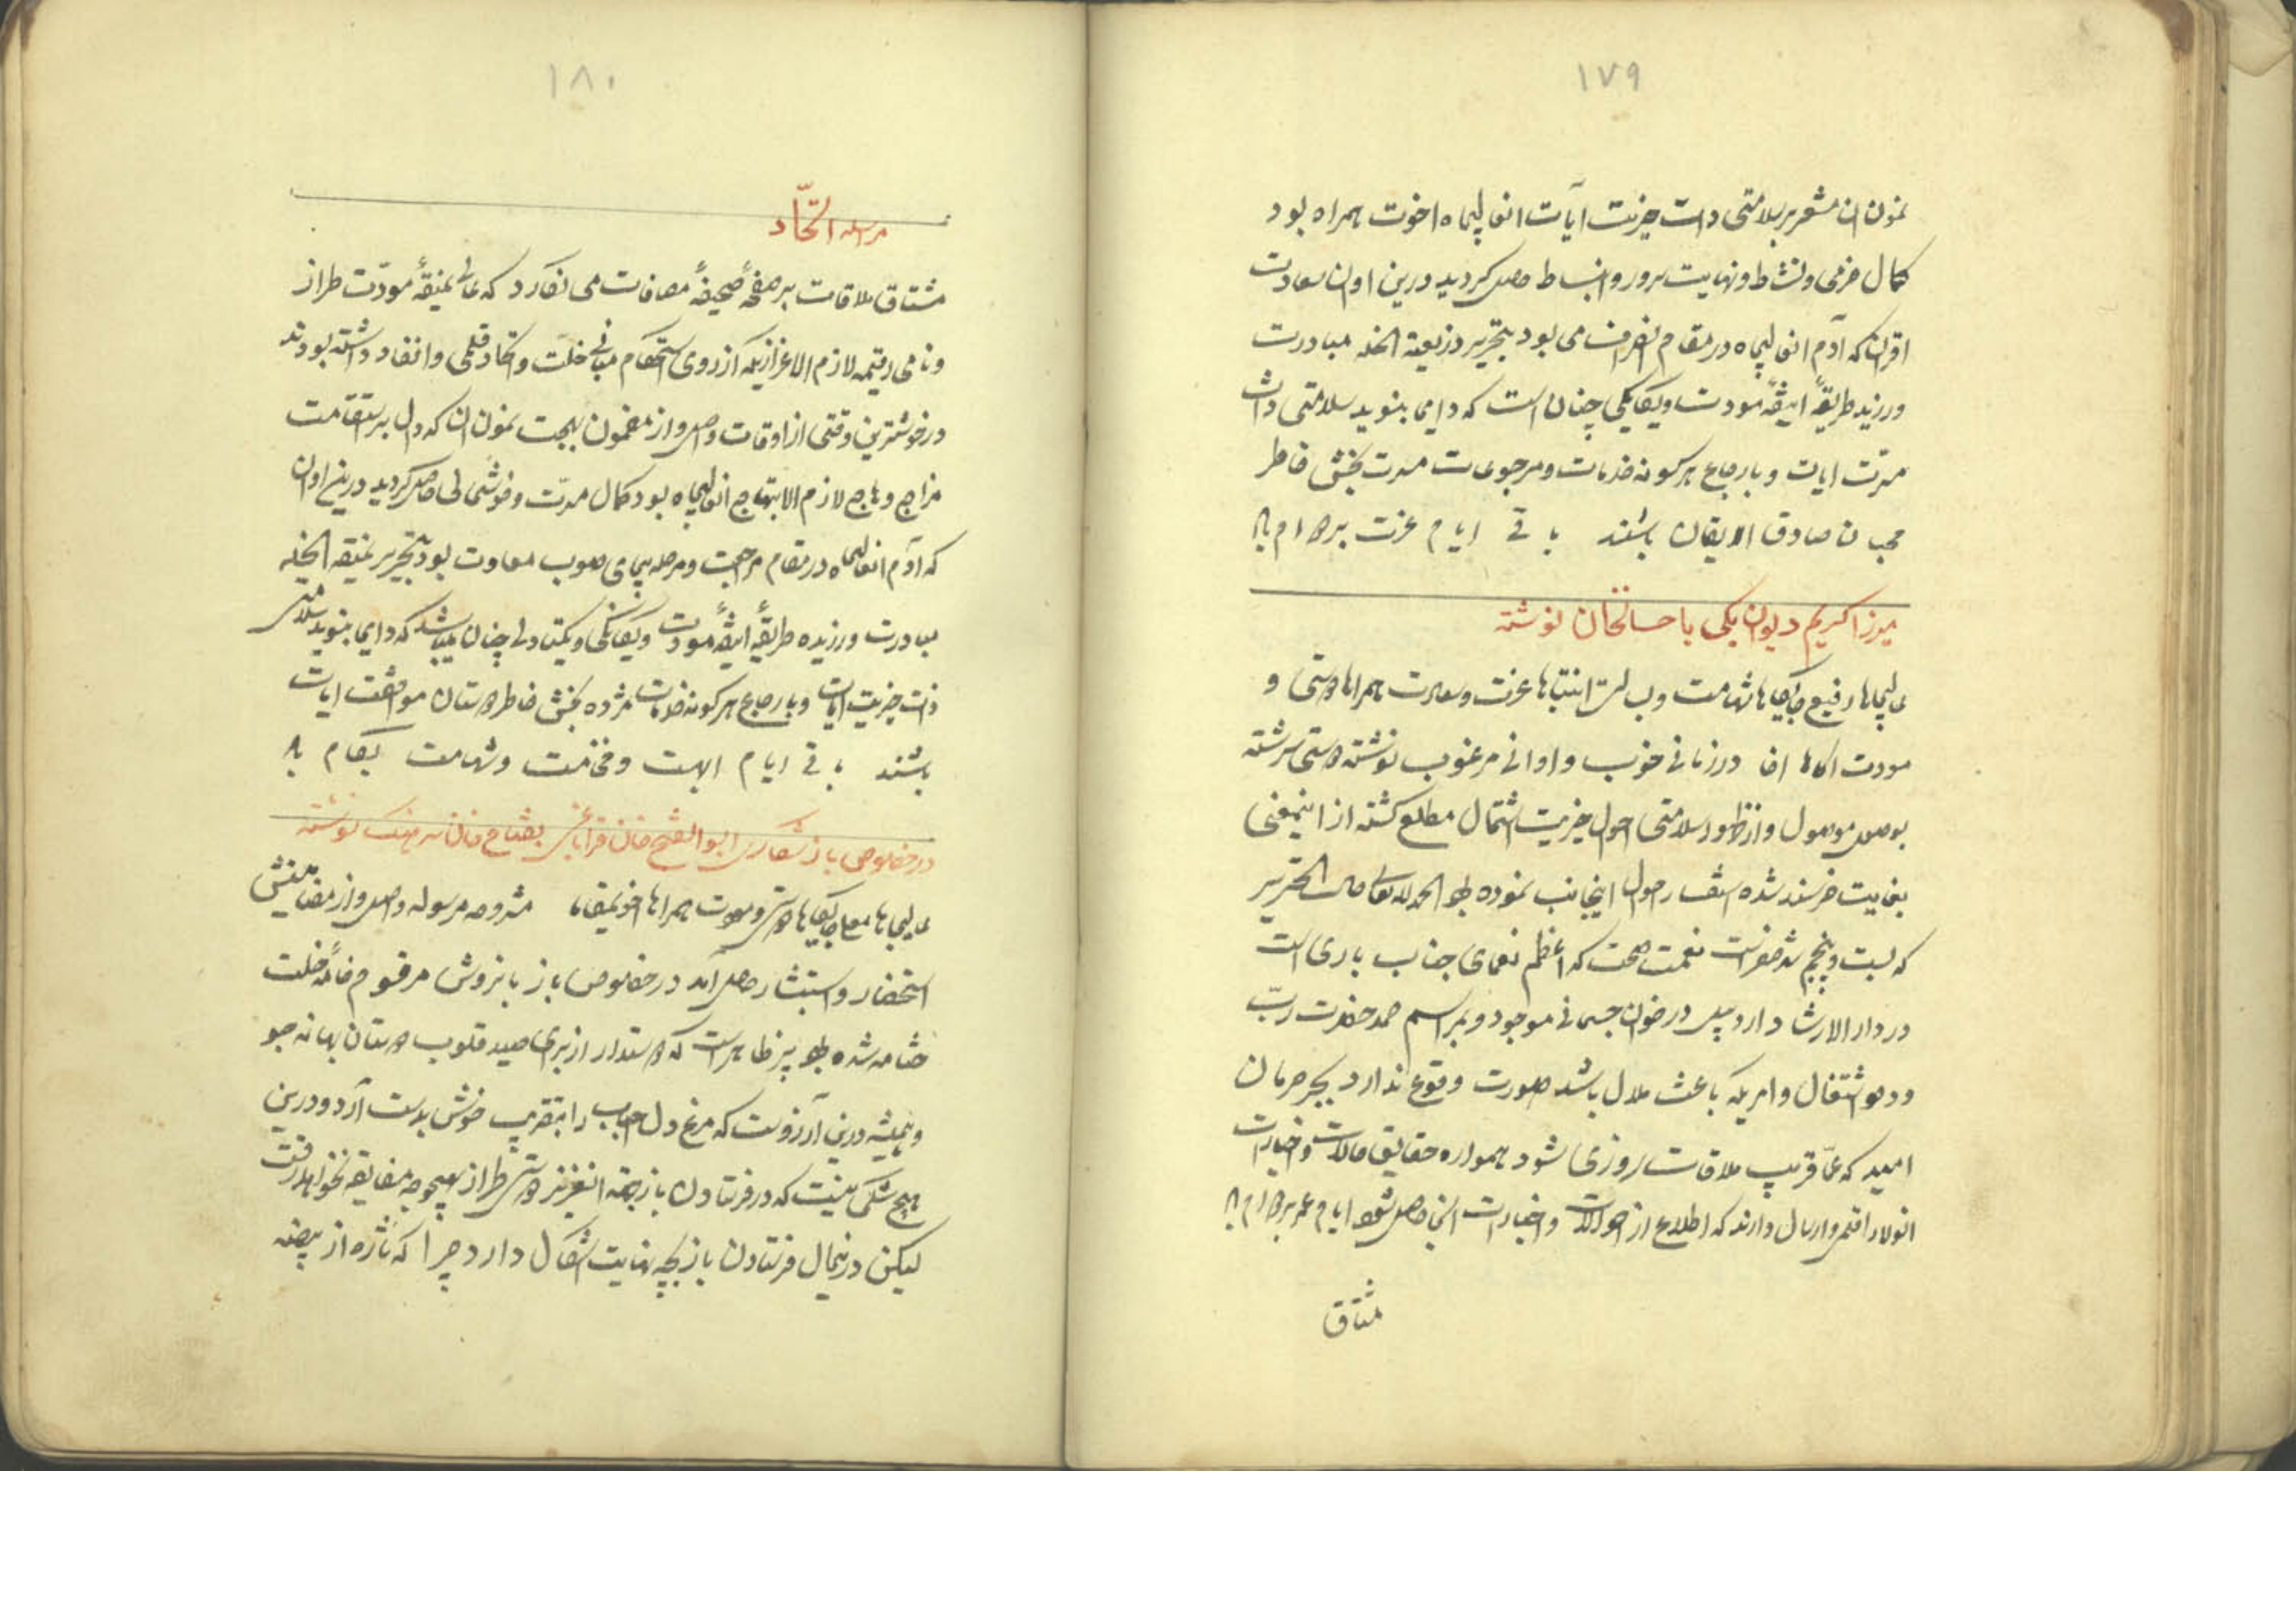 ١٧٩
نمون ان مشعر بر سلامتی ذات خیریت آیات انعالیجاه اخوت همراه بود
کمال خرمی و نشاط و نهایت سرور و انبساط حاصل کردید درین اوان سعادت
اقران که آدم انعالیجاه در مقام انصراف می بود بتحریر ذریعة الخله مبادرت
ورزید طریقهٔ انیقهٔ مودت و یکانکی چنان است که دایما بنوید سلامتی ذات
مسرّت ایات و بارجاع هر کونه خدمات و مرجوعات مسرت بخش خاطر
محبان صادق الایقان باشند باقی ایام عزت بر دوام باد
میرزا کریم دیوان بکی باحسانخان نوشته
عالیجاها رفیع جایکاها شهامت و بسالت انتباها عزت و سعادت همراها دوستی و
مودت اکاها ان در زمانی خوب و اوانی مرغوب نوشته دوستی سرشته
بوصول موصول و از ظهور سلامتی احوال خیریت اشتمال مطلع کشته از اینمعنی
بغایت خرسند شده استفسار احوال اینجانب نموده بودند الحمد لله تعالی حالت التحریر
که بیست و پنجم شهر صفر است نعمت صحت که اعظم نعمای جناب باری است
در دار الارشاد اردبیل در خوان جسمانی موجود و بمراسم حمد حضرت ربّ
ودود اشتغال و امریکه باعث ملال باشد صورت وقوع ندارد بجز حرمان
امید که عنقریب ملاقات روزی شود همواره حقایق حالات و اخبارات
انولا را قلمی و ارسال دارند که اطلاع از احوالات و اخبارات انجا حاصل شود ایام عمر بر دوام باد
مشتاق
١٨٠
مراسله اتّحاد
مشتاق ملاقات بر صفحهٔ صحیفهٔ مصافات می نکارد که عالی نمیقهٔ مودّت طراز
و نامی رقیمه لازم الاعزازیکه از روی استحکام مبانی خلّت و اتحاد قلمی و انفاد داشته بودند
در خوشترین وقتی از اوقات واصل و از مضمون بهجت نمون ان که دال بر استقامت
مزاج وهاج لازم الابتهاج انعالیجاه بود کمال مسرّت و خوشحالی حاصل کردید درینح اوان
که آدم انعالیجاه در مقام مراجعت و مرحله پیمای صوب معاودت بود بتحریر نمیقه الخله
مبادرت ورزیده طریقهٔ انیقهٔ مودت و یکانکی و یکتادلی چنان میباشد که دایما بنوید سلامتی
ذات خیریت ایات و بارجاع هر کونه خدمات مژده بخش خاطر دوستان موافقت ایات
باشند باقی ایام ابهت و فخامت و شهامت بکام باد
در خصوص باز شکاری ابو الفتح خان قراباغی بفتاح خان سرهنک نوشته
عالیجاها معلی جایکاها دوستی و مودت همراها اخوتمقاما مشروحه مرسوله واصل و از مضامینش
استحضار و استبشار حاصل آمد در خصوص باز بانزوش مرقوم خامهٔ خلت
ختامه شده بود پر ظاهر است که دوستدار از برای صید قلوب دوستان بهانه جو
و همیشه درین آرزوست که مرغ دل احباب را بتقریب خوش بدست آرد و درین
هیچ شکی نیست که در فرستادن باز بجهة انعزیز دوستی طراز بهیچوجه مضایقه نخواهد رفت
لیکن در اینحال فرستادن باز بچه نهایت اشکال دارد چرا که تازه از بیضه